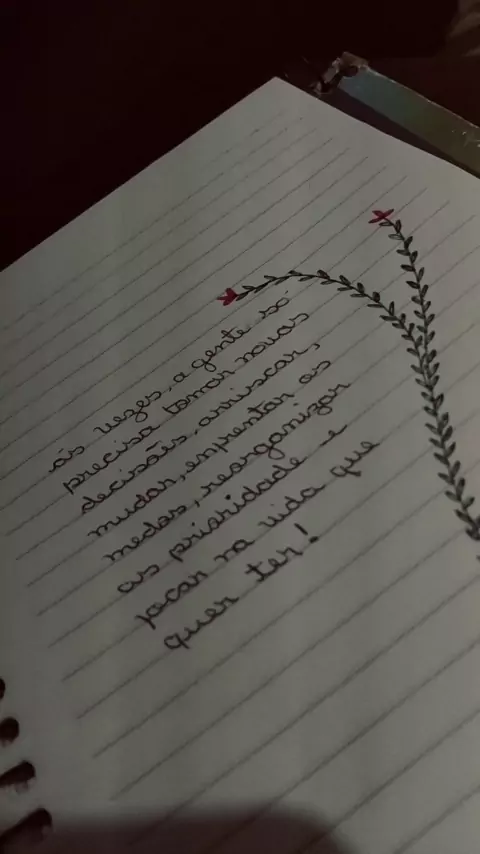 às vezes, a gente só
precisa tomar novas
decisões, arriscar,
mudar, enfrentar os
medos, reorganizar
as prioridade e
focar na vida que
quer ter!